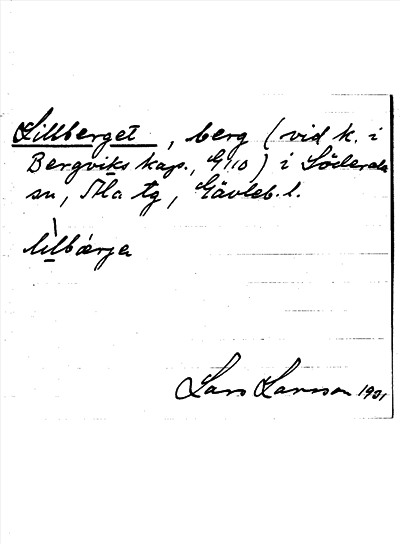 Lillberget, berg (vid k. i
Bergviks kap., G110) i Söderala
sn, Ala tg, Gävleb. l.
lìlbárja
Lars Larsson 1901